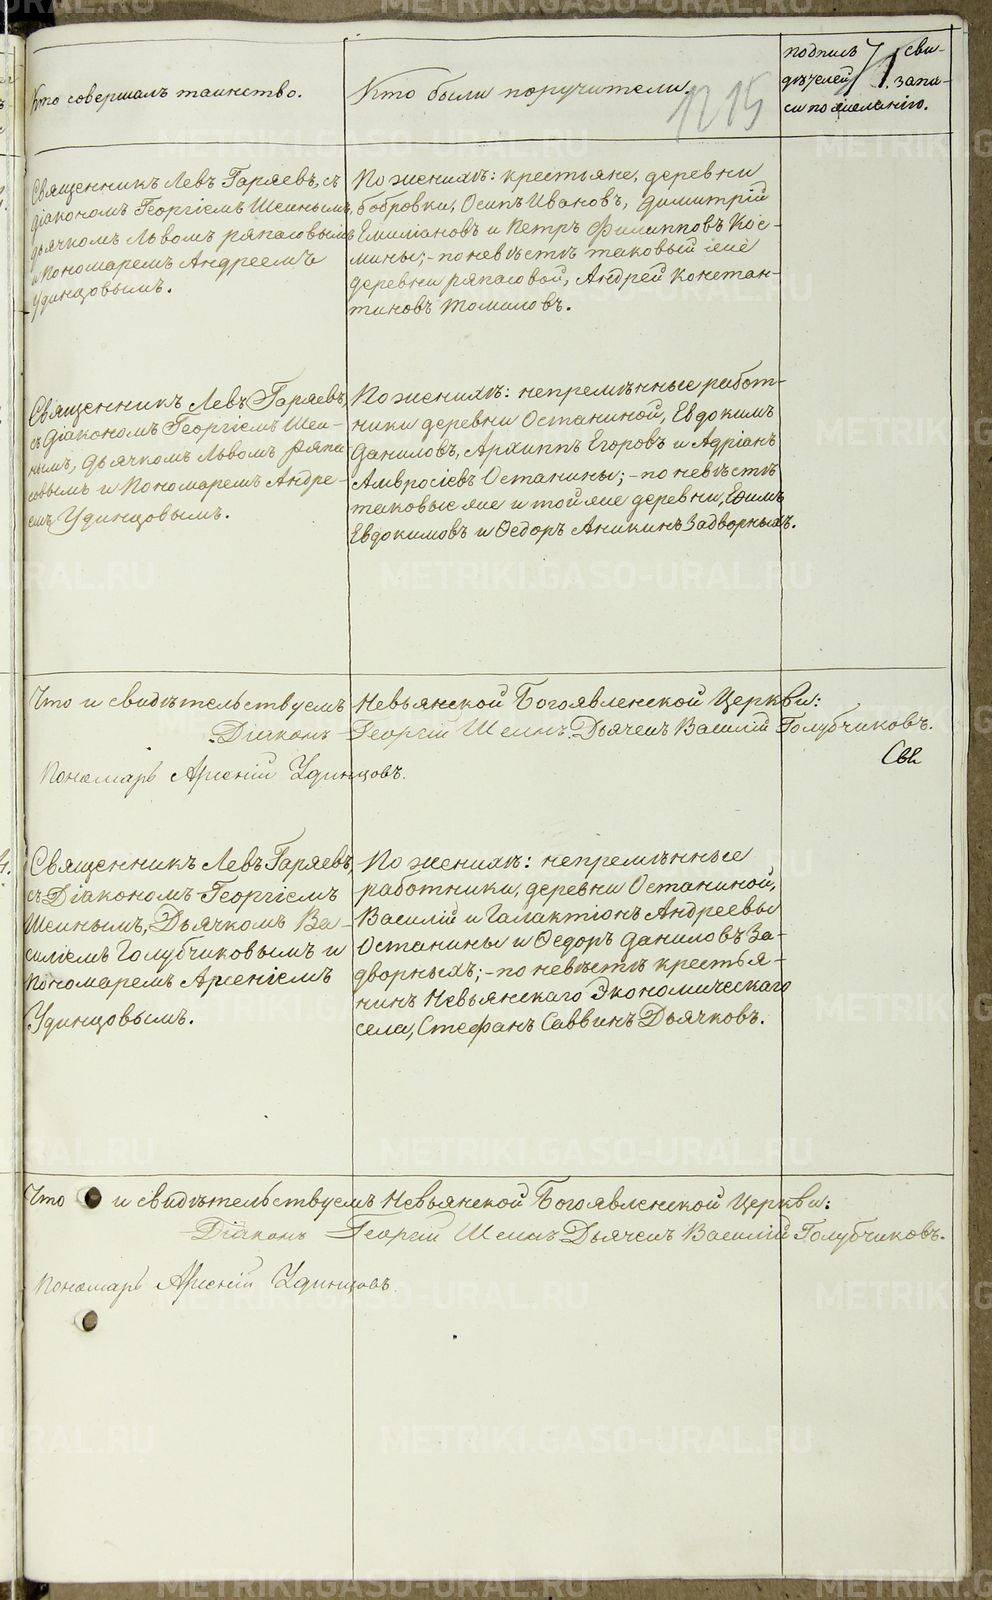 Кто совершалъ таинство.
Кто были поручители.
1215
подпись сви-
дѣтелей запи-
си по желанію.
71
Священникъ Левъ Гаряевъ, съ
діакономъ Георгіемъ Шеинымъ,
дьячкомъ Львомъ ряпасовымъ
и Пономаремъ Андреемъ
Удинцовымъ.
По женихѣ: крестьяне, деревни
бобровки, Осипъ Ивановъ, Димитрій
Емиліановъ и Петръ Филипповъ Кос-
мины; - по невѣстѣ таковый же
деревни ряпасовой, Андрей Констан-
тиновъ Томиловъ.
Священникъ Левъ Гаряевъ,
съ Діакономъ Георгіемъ Шеи-
нымъ, дьячкомъ Львомъ ряпа-
совымъ и Пономаремъ Андре-
емъ Удинцовымъ.
По женихѣ: непремѣнные работ-
ники деревни Останиной, Евдокимъ
Даниловъ, Архиппъ Егоровъ и Адріанъ
Амвросіевъ Останины; - по невѣстѣ
таковые же и той же деревни, Ефимъ
Евдокимовъ и Ѳедоръ Аникинъ Задворныхъ.
Что и свидѣтельствуемъ Невьянской Богоявленской Церкви:
Діаконъ Георгій Шеинъ. Дьячекъ Василій Голубчиковъ.
Пономарь Арсеній Удинцовъ.
Свя
4.
Священникъ Левъ Гаряевъ,
съ Діакономъ Георгіемъ
Шеинымъ, Дьячкомъ Ва-
силіемъ Голубчиковымъ и
Пономаремъ Арсеніемъ
Удинцовымъ.
По женихѣ: непремѣнные
работники, деревни Останиной,
Василій и Галактіонъ Андреевы
Останины и Ѳедоръ Даниловъ За-
дворныхъ; - по невѣстѣ крестья-
нинъ Невьянскаго Экономическаго
села, Стефанъ Саввинъ Дьячковъ.
Что и свидѣтельствуемъ Невьянской Богоявленской Церкви:
Діаконъ Георгій Шеинъ Дьячекъ Василій Голубчиковъ.
Пономарь Арсеній Удинцовъ.
METRIKI.GASO-URAL.RU